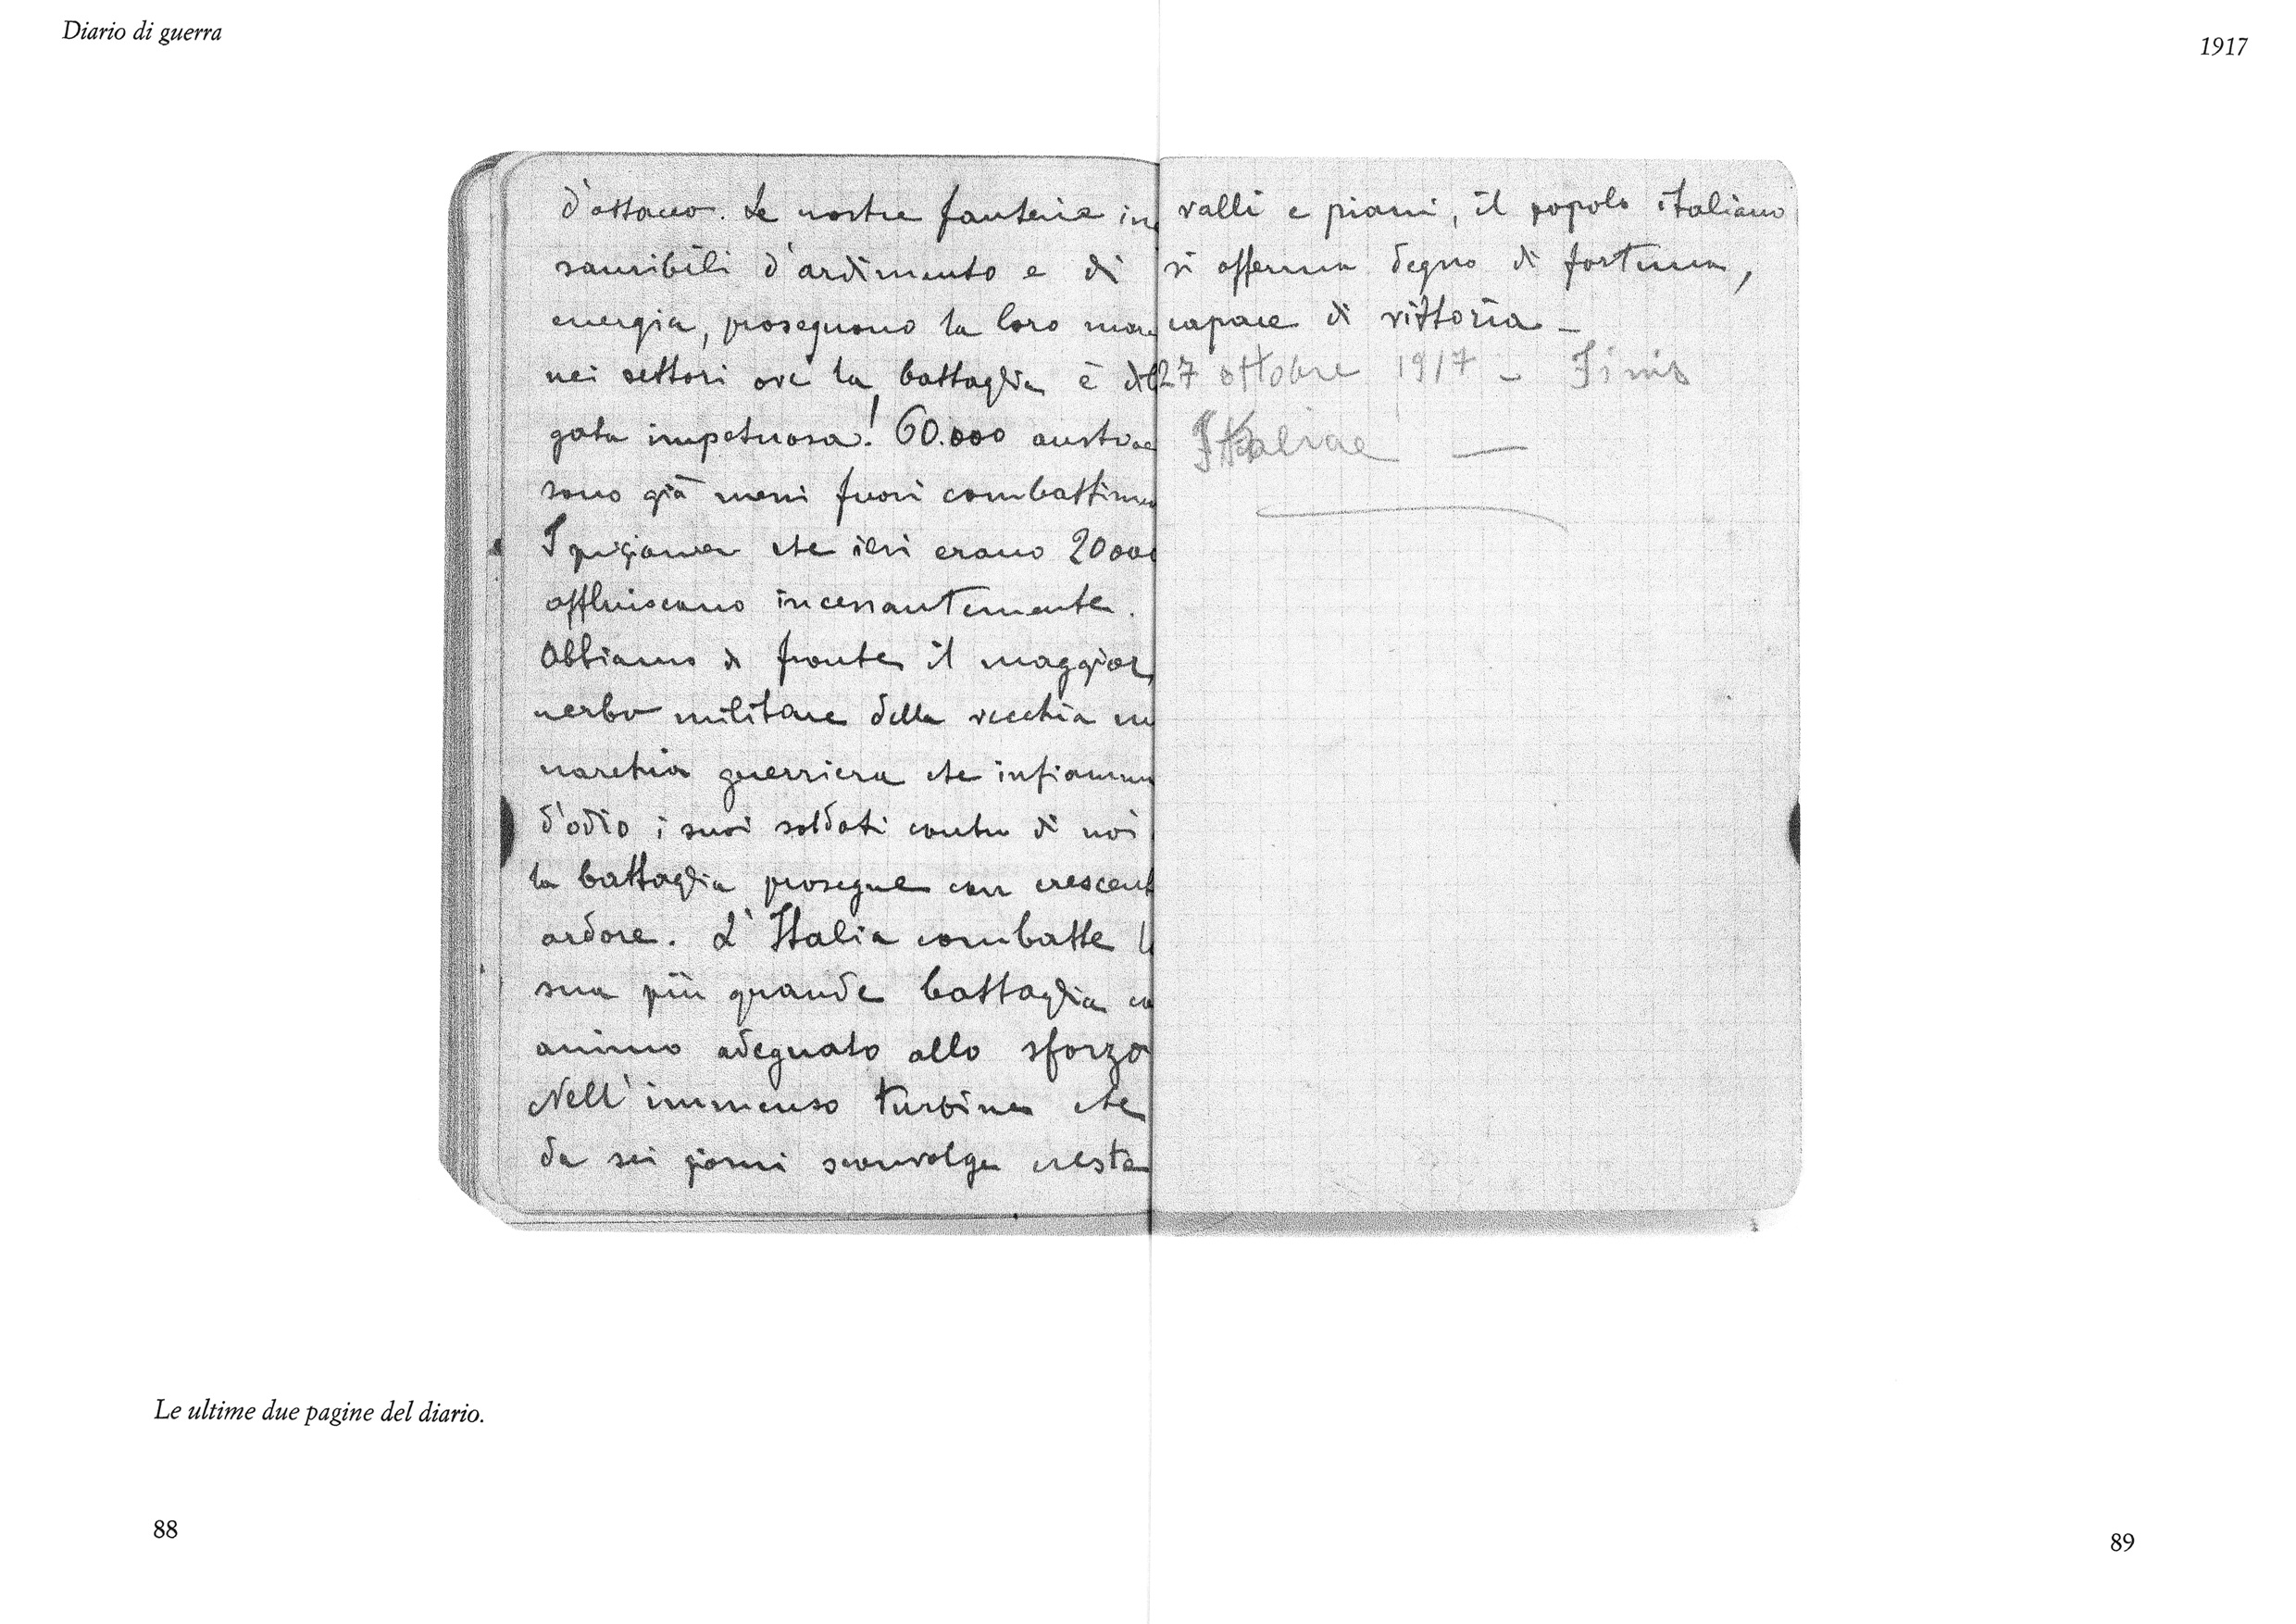 Diario di guerra
1917
d'attacco. Le nostre fanterie ine
sauribili d'ardimento e di
energia, proseguono la loro marc
nei settori ove la battaglia è dil
gata impetuosa! 60.000 austriac
sono già messi fuori combattimen
I prigionieri che ieri erano 20000
affluiscono incessantemente.
Abbiamo di fronte il maggior
nerbo militare della vecchia mo
narchia guerriera che infiamma
d'odio i suoi soldati contro di noi
la battaglia prosegue con crescent
ardore. L'Italia combatte l
sua più grande battaglia co
animo adeguato allo sforzo
Nell'immenso turbine che
da sei giorni sconvolge creste
valli e piani, il popolo italiano
si afferma degno di fortuna,
capace di vittoria –
27 ottobre 1917 – Finis
Italiae —
Le ultime due pagine del diario.
88
89